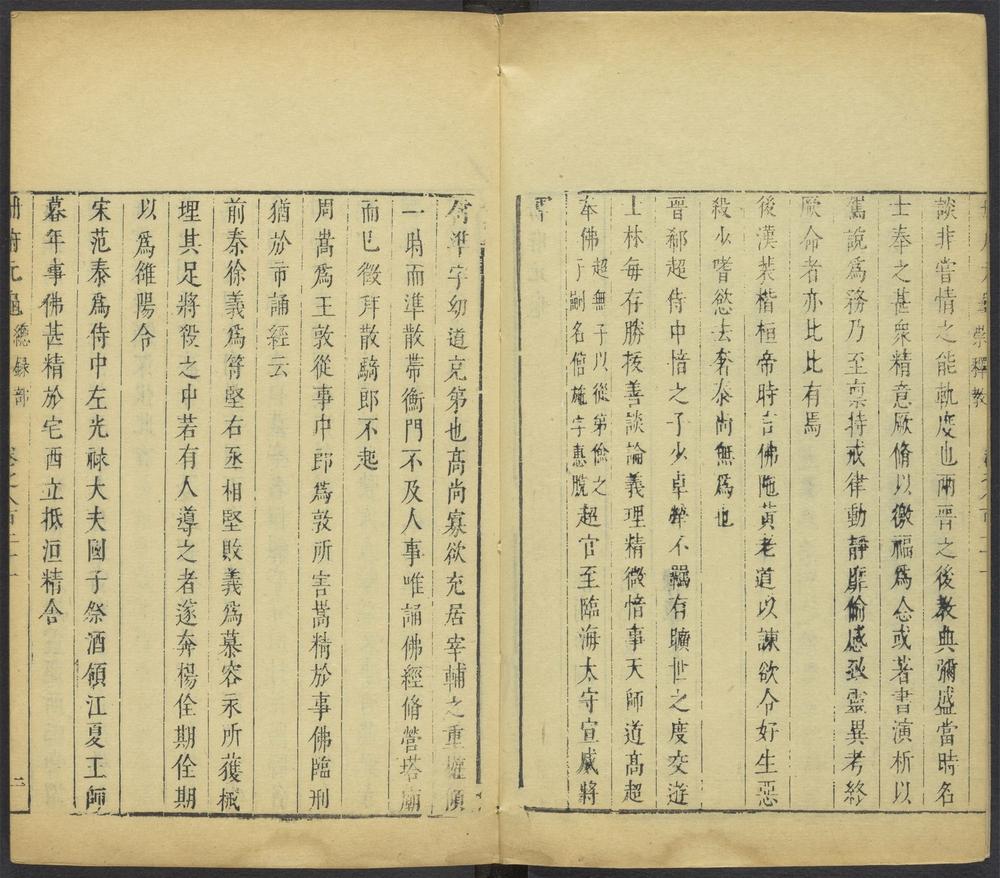 崇釋教
談非嘗情之能軌度也兩晉之後教典彌盛當時名
士奉之甚衆精意厥脩以徼福爲念或著書演析以
爲說爲務乃至稟持戒律動靜靡偷感致靈異考終
厥命者亦比比有焉
後漢裴楷桓帝時言佛陁黃老道以諫欲令好生惡
殺少嗜慾去奢泰尚無爲也
晉郗超侍中愔之子少卓犖不羈有曠世之度交遊
士林每存勝拔善談論義理精微愔事天師道髙超
奉佛超無子以從弟儉之子嗣名僧施字惠脫超官至臨海太守宣威將
軍
何準字幼道充弟也高尚寡欲充居宰輔之重權傾
一時而準散帶衡門不及人事唯誦佛經脩營塔廟
而巳徵拜散騎郎不起
周嵩爲王敦從事中郎爲敦所害嵩精於事佛臨刑
猶於市誦經云
前秦徐義爲苻堅右丞相堅敗義爲慕容永所獲械
埋其足將殺之中若有人導之者遂奔楊佺期佺期
以爲雒陽令
宋范泰爲侍中左光祿大夫國子祭酒領江夏王師
暮年事佛甚精於宅西立祇洹精舍
冊府元龜總錄部 卷之八百二十一 二